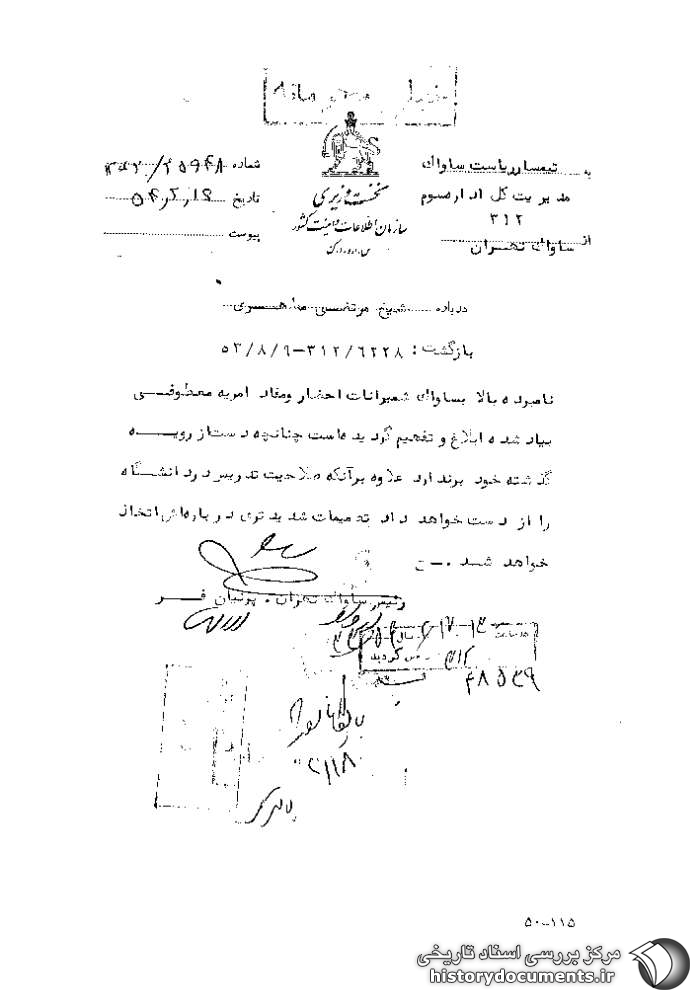 خیلی محرمانه
به تیمسار ریاست ساواک
مدیریت کل اداره سوم
۳۱۲
از ساواک تهران
نخست وزیری
سازمان اطلاعات و امنیت کشور
س.ا.و.ا.ک
شماره
تاریخ
پیوست
درباره شیخ مرتضی مطهری
بازگشت: ۳۱۲/۶۲۲۸-۵۳/۸/۹
نامبرده بالا بساواک شمیرانات احضار ومفاد امریه معطوفی
بیاد شده ابلاغ و تفهیم گردیده است چنانچه دست از رویه
گذشته خود برندارد علاوه برآنکه صلاحیت تدریس در دانشگاه
را از دست خواهد داد تصمیمات شدیدتری درباره‌اش اتخاذ
خواهد شد .ـ ح
رئیس ساواک تهران . پرنیان فر
۴۸۵۳۹
۵۰-۱۱۵
مرکز بررسی اسناد تاریخی
historydocuments.ir